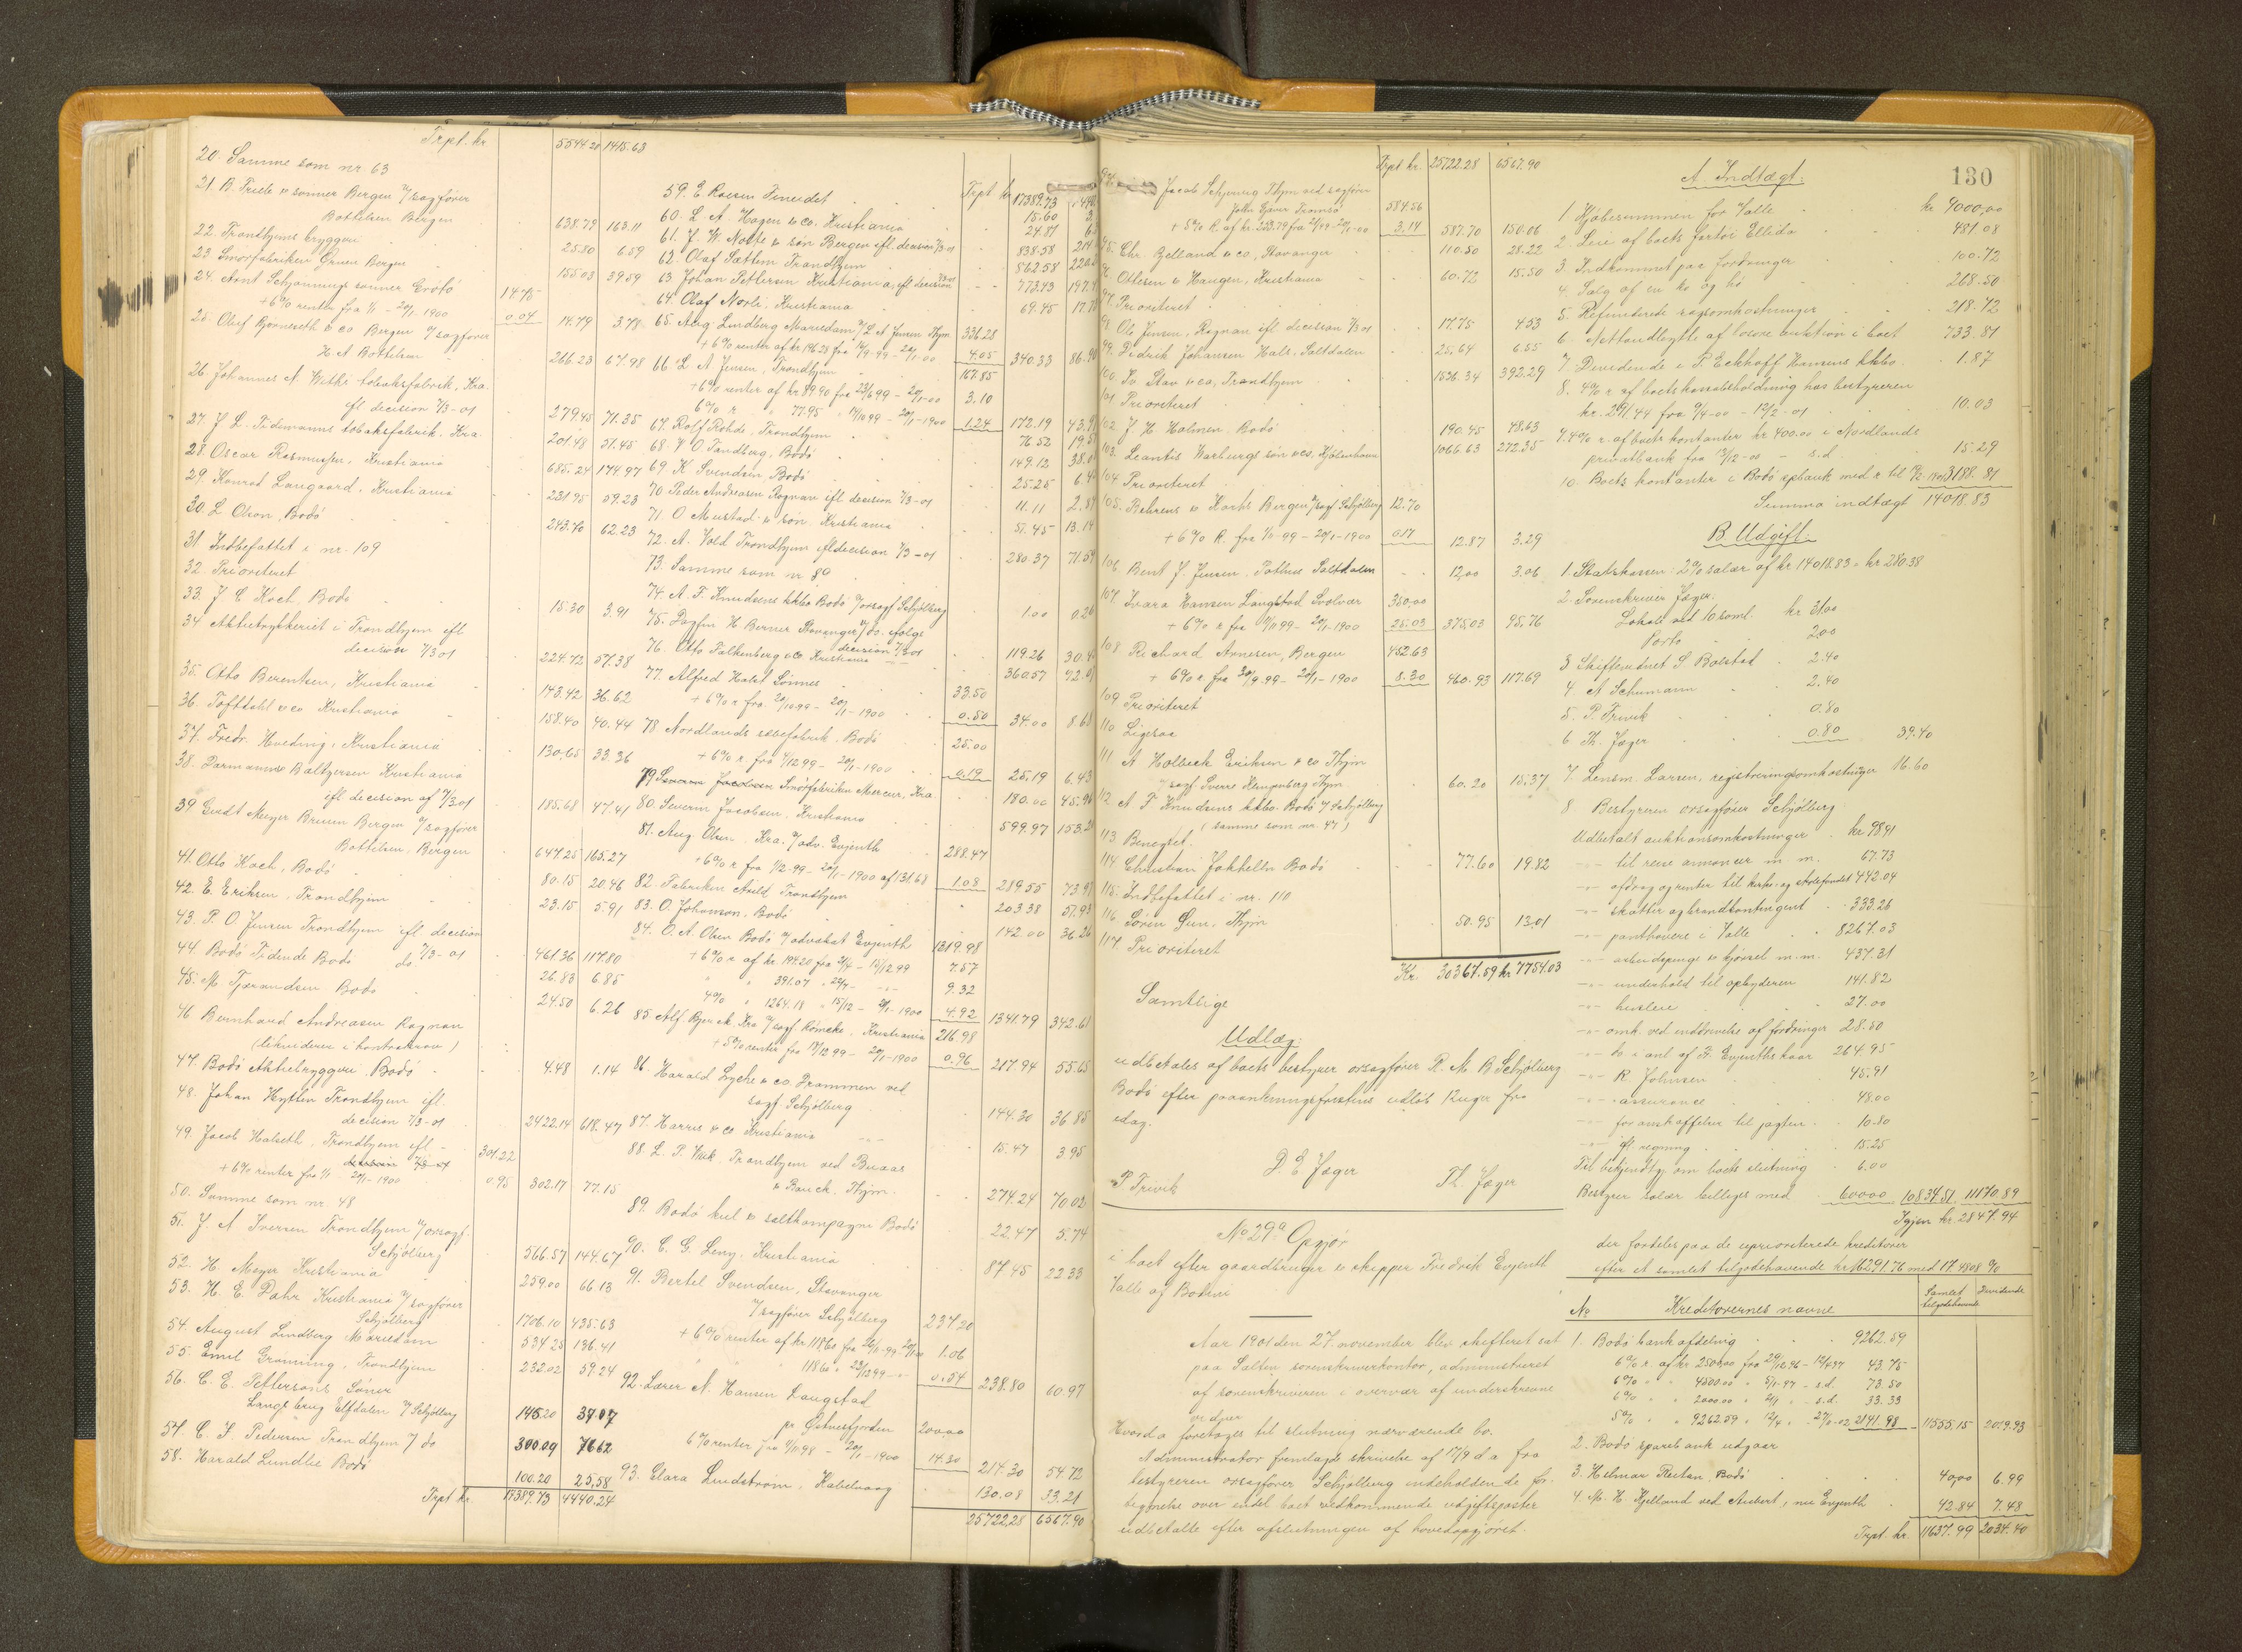 Trpt. kr. 5544.20 1415.63
20. Samme som nr. 63
21. B. Friele & sønner Bergen v/ sagfører
Bottelsen Bergen 638.79 163.11
22. Trondhjems bryggeri 25.80 6.59
23. Smørfabriken Ørnen Bergen 155.03 39.59
24. Arnt Schjønnings sønner Grøtø 14.75
+ 6% renter fra 1/1 - 20/1-1900 0.04 14.79 3.78
25. Oluf Bjørneseth & co Bergen v/ sagfører
H. A. Bottelsen 266.23 67.98
26. Johannes N. Withs tobaksfabrik, Kra.
ifl. decision 7/3-01 279.45 71.35
27. J. L. Tidemanns tobaksfabrik, Kra. 201.48 51.45
28. Oscar Rasmussen, Kristiania 685.24 174.97
29. Konrad Langaard, Kristiania 231.95 59.23
30. L. Olson, Bodø 243.70 62.23
31. Indbefattet i nr. 109
32. Prioriteret
33. J. C. Koch, Bodø 15.30 3.91
34. Aktietrykkeriet i Trondhjem ifl.
decision 7/3 01 224.72 57.38
35. Otto Berentsen, Kristiania 143.42 36.62
36. Toftdahl & co Kristiania 158.40 40.44
37. Fredr. Hveding, Kristiania 130.65 33.36
38. Darmanns & Baltzersen Kristiania
ifl. decision af 7/3 01 185.68 47.41
39. Gerdt Meyer Bruun Bergen v/ sagfører
Bottelsen, Bergen 647.25 165.27
41. Otto Koch, Bodø 80.15 20.46
42. E. Eriksen, Trondhjem 23.15 5.91
43. P. O. Jensen Trondhjem ifl. decision
7/3-01 461.36 117.80
44. Bodø Tidende Bodø do. 26.83 6.85
45. M. Tjærandsen Bodø 24.50 6.26
46. Bernhard Andreasen Rognan
(likviderer i kontrakrav)
47. Bodø Aktiebryggeri, Bodø 4.48 1.14
48. Johan Hytten Trondhjem ifl.
decision 7/3-01 2422.14 618.47
49. Jacob Halseth, Trondhjem ifl. 301.22
decision 7/3-01
+ 6% renter fra 1/1 - 20/1-1900 0.95 302.17 77.15
50. Samme som nr. 48
51. J. A. Iversen Trondhjem v/ orsagf.
Schjølberg 566.57 144.67
52. H. Meyer Kristiania 259.00 66.13
53. H. E. Dahr Kristiania v/ sagfører
Schjølberg 1706.10 435.63
54. August Lindberg Mariedam 534.25 136.41
55. Emil Grøning, Trondhjem 232.02 59.24
56. C. E. Pettersons Søner
Långs brug Elfdalen v/ Schjølberg 145.20 37.07
57. C. F. Pedersen Trondhjem v/ do 300.09 76.62
58. Harald Lundlie Bodø 100.20 25.58
Trpt. kr. 17389.73 4440.24
Trpt. kr. 17389.73
59. E. Roesen Fineidet 15.60
60. L. A. Hagen & co. Kristiania 24.87
61. J. W. Nolte & søn Bergen ifl. decision 7/3-01 838.58
62. Olaf Sættem Trondhjem 862.58
63. Johan Pettersen Kristiania, ifl. decision 7/3-01 773.43
64. Olaf Norli, Kristiania 69.45
65. Aug. Lindberg Mariedam v/ L. A. Jensen Thjm 336.28
+ 6% renter af kr. 196.28 fra 14/9-99 - 20/1-00 4.05 340.33
66. L. A. Jensen, Trondhjem 167.85
+ 6% renter af kr. 89.90 fra 23/6 99 - 20/1-00 3.10
6% r. " 77.95 " 14/10 99 - 20/1-1900 1.24 172.19
67. Rolf Rohde, Trondhjem 76.52
68. V. O. Tandberg, Bodø 149.12
69. K. Svendsen, Bodø 25.25
70. Peder Andreasen Rognan ifl. decision 7/3-01 11.11
71. O. Mustad & søn Kristiania 51.45 13.14
72. A. Vold Trondhjem ifl. decision 7/3-01 280.37
73. Samme som nr. 89
74. A. F. Knudsens kkbo Bodø v/ orsagf. Schjølberg 1.00
75. Dagfin H. Berner Stavanger v/ do. ifølge
decision 7/3 01 119.26
76. Otto Falkenberg & co. Kristiania 360.57
77. Alfred Holst Sønner 33.50
+ 6% r. fra 20/10-99 - 20/1-1900 0.50 34.00
78. Nordlands sæbefabrik, Bodø 25.00
+ 6% r. fra 4/12 99 - 20/1-1900 0.19 25.19 6.43
79. Severin Jacobsen Smørfabriken Mercur, Kra 180.00 45.96
80. Severin Jacobsen, Kristiania 599.97
81. Aug. Olsen, Kra. v/ adv. Evjenth 288.47
+ 6% r. fra 1/12-99 - 20/1-1900 af 131.68 1.08 289.55
82. Fabriken Axeld Trondhjem 203.38
83. O. Johanson, Bodø 142.00 36.26
84. O. A. Olsen Bodø v/ advokat Evjenth 1319.98
+ 6% r. af kr. 199.20 fra 2/4 - 15/12 99 7.57
" 391.07 9.32
4% " 1264.18 " 15/12 - 20/1-1900 4.92 1341.79 342.61
85. Alf. Bjerck, Kra v/ sagf. Rømcke, Kristiania 216.98
+ 5% renter fra 17/12 99 - 20/1-1900 0.96 217.94 55.65
86. Harald Lyche & co. Drammen ved
sagf. Schjølberg 144.30 36.85
87. Harris & co. Kristiania 15.47 3.95
88. L. T. Wick Trondhjem ved Buaas
& Bauck, Thjm. 274.24 70.02
89. Bodø kul & saltkompagni Bodø 22.47 5.74
90. C. G. Leny, Kristiania 87.45 22.33
91. Bertel Svendsen, Stavanger
v/ sagfører Schjølberg 237.20
+ 6% renter af kr. 118.60 fra 26/11-99 - 20/1 00 1.06
" 118.60 " 23/12 99 0.54 238.80 60.97
92. Lærer N. Hansen Langstad
pr. Øxnesfjorden 200.00
6% renter fra 9/11 98 - 20/1-1900 14.30 214.30 54.72
93. Clara Lindstrøm, Kabelvaag 130.08 33.21
25722.28 6567.90
130
Trpt. kr. 25722.28 6567.90
94. Jacob Schjerving Thjm ved sagfører
John Gjæver Tromsø 584.56
+ 5% R. af kr. 253.79 fra 20/1-00 3.14 587.70 150.06
95. Chr. Bjelland & co., Stavanger 110.50 28.22
96. Ottesen & Haugen, Kristiania 60.72 15.50
97. Prioriteret
98. Ole Jensen, Rognan ifl. decision 7/3 01 17.75 4.53
99. Didrik Johansen Hals, Saltdalen 25.64 6.55
100. Iv. Stav & co., Trondhjem 1536.34 392.29
101. Prioriteret
102. J. H. Holmen, Bodø 190.45 48.63
103. Leontis Warburgs søn & co. Kjøbenhavn 1066.63 272.35
104. Prioriteret
105. Behrens & Koch Bergen v/ sagf. Schjølberg 12.70
+ 6% R. fra 1/11-99 - 20/1-1900 0.17 12.87 3.29
106. Bent J. Jensen, Pothus Saltdalen 12,00 3.06
107. Ivara Hansen Langstad Svolvær 350.00
+ 6% r. fra 9/11 99 - 20/1-1900 25.03 375.03 95.76
108. Richard Arnesen, Bergen 452.63
+ 6% r. fra 30/9 99 - 20/1-1900 8.30 460.93 117.69
109. Prioriteret
110. Ligesaa
111. A. Holbeck Eriksen & co Thjm
v/ sagf. Sverre Klingenberg Thjm. 60.20 15.37
112. A. F. Knudsens kkbo. Bodø v/ Schjølberg
(samme som nr. 47)
113. Benegtet. 77.60 19.82
114. Christian Jakhelln Bodø
115. Indbefattet i nr. 110
116. Søren Lun, Thjm 50.95 13.01
117. Prioriteret
Kr. 30367.59 kr. 7754.03
Samtlige
Udlæg:
udbetales af boets bestyrer orsagfører R. M. B. Schjølberg
Bodø efter paaankningsfristens udløb 12 uger fra
idag.
D. E. Jæger
P. Trivik Th. Jæger
No 29a Opgjør
i boet efter gaardbruger & skipper Fredrik Evjenth
Valle af Bodin
Aar 1901 den 27. november blev skifteret sat
paa Salten sorenskriverkontor, administreret
af sorenskriveren i overvær af underskrevne
vidner
Hvorda foretoges til slutning nærværende bo.
Administrator fremlagde skrivelse af 17/9 d. a. fra
bestyreren orsagfører Schjølberg indeholdende for-
tegnelse over endel boet vedkommende udgiftsposter
udbetalte efter afslutningen af hovedopgjøret.
A. Indtægt:
1. Kjøbesummen for Valle kr. 9000.00
2. Leie af boets fartøi Ellida 481.08
3. Indkommet paa fordringer 100.72
4. Salg af en ko og hø 268.50
5. Refunderede sagsomkostninger 218.72
6. Nettoudbytte af løsøre auktion i boet 733.81
7. Dividende i P. Eckhoff Hansens kkbo. 1.87
8. 4% r. af boets kassabeholdning hos bestyreren
kr. 291.44 fra 9/4-00 - 12/2-01 10.03
9. 4% r. af boets kontanter kr 400.00 i Nordlands
privatbank fra 13/12-00 - s.d. 15.29
10. Boets kontanter i Bodø spbank med r. til 3188.81
Summa indtægt 14018.83
B. Udgift:
1. Statskassen: 2% salær af kr. 14018.83 = kr. 280.38
2. Sorenskriver Jæger:
Lokale ved 10 saml. kr. 31.00
Porto 2.00
3. Skiftevidnet S. Bolstad 2.40
4. A. Schumann 2.40
5. P. Trivik 0.80
6. Th. Jæger 0.80 39.40
7. Lensm. Larsen, registreringsomkostninger 16.60
8. Bestyreren orsagfører Schjølberg
Udbetalt auktionsomkostninger kr. 98.91
-"- til reise annoncer m. m. 67.73
-"- afdrag og renter til kirke- og skolefondet 442.04
-"- skatter og brandkontingent 333.26
-"- panthavere i Valle 8267.03
-"- arbeidspenge & kjørsel m. m. 437.31
-"- underhold til opbyderen 141.82
-"- husleie 27.00
-"- omk. ved inddrivelse af fordringer 28.50
-"- do i anl. af F. Evjenths kaar 264.95
-"- R. Johnsen 45.91
-"- assurance 48.00
-"- foranskaffelser til jagten 10.80
-"- ifl. regning 15.25
Til bekjendtg. om boets slutning 6.00
Bestyrer salær billiges med 600.00 10834.51 11170.89
Igjen kr. 2847.94
der fordeles paa de uprioriterede kreditorer
efter et samlet tilgodehavende kr. 16291.76 med 17.4808 %
No Kreditorernes navne Samlet tilgodehavende Dividende
1. Bodø bank afdeling 9262.59
6% r. af kr. 2500.00 fra 29/12 96 - 12/4 97 43.75
6% " " 4500.00 " 5/1-97 - s.d. 73.50
6% " " 2000.00 " 2/1 - s.d. 33.33
5% " " 9262.59 " 12/4 - 27/11-02 2141.98 11555.15 2019.93
2. Bodø sparebank udgaar
3. Helmar Reitan, Bodø 40.00 6.99
4. M. H. Kjelland ved Aubert, nu Evjenth 42.84 7.48
Trpt. kr. 11637.99 2034.40